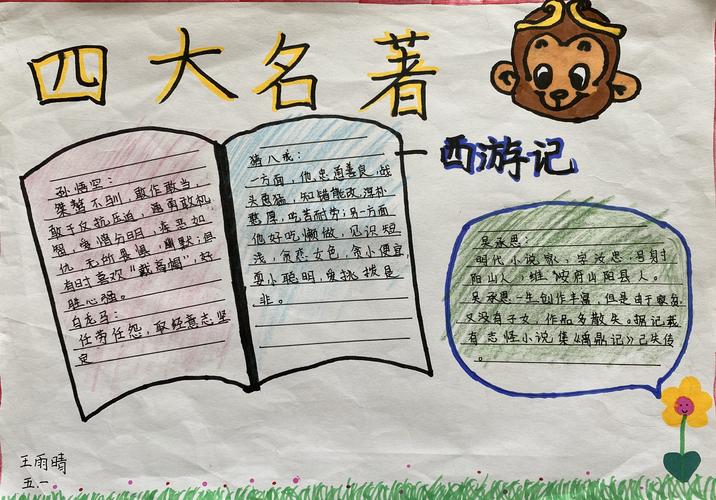 四大名著
西游记
孙悟空：
桀骜不驯，敢作敢当，
敢于反抗压迫，勇敢机
智，爱憎分明，疾恶如
仇，无所畏惧，幽默；但
有时喜欢“戴高帽”，好
胜心强。
白龙马：
任劳任怨，取经意志坚
定
猪八戒：
一方面，他忠勇善良，战
头勇猛，知错能改，淳朴
憨厚，吃苦耐劳；另一方面
他好吃懒做，见识短
浅，贪恋女色，贪小便宜，
耍小聪明，爱挑拨是
非。
吴承恩：
明代小说家，字汝忠，号射
阳山人，淮安府山阳县人。
吴承恩一生创作丰富，但是由于家贫，
又没有子女，作品多散失。据记载
有志怪小说集《禹鼎记》已失传
。
王雨晴
五.一